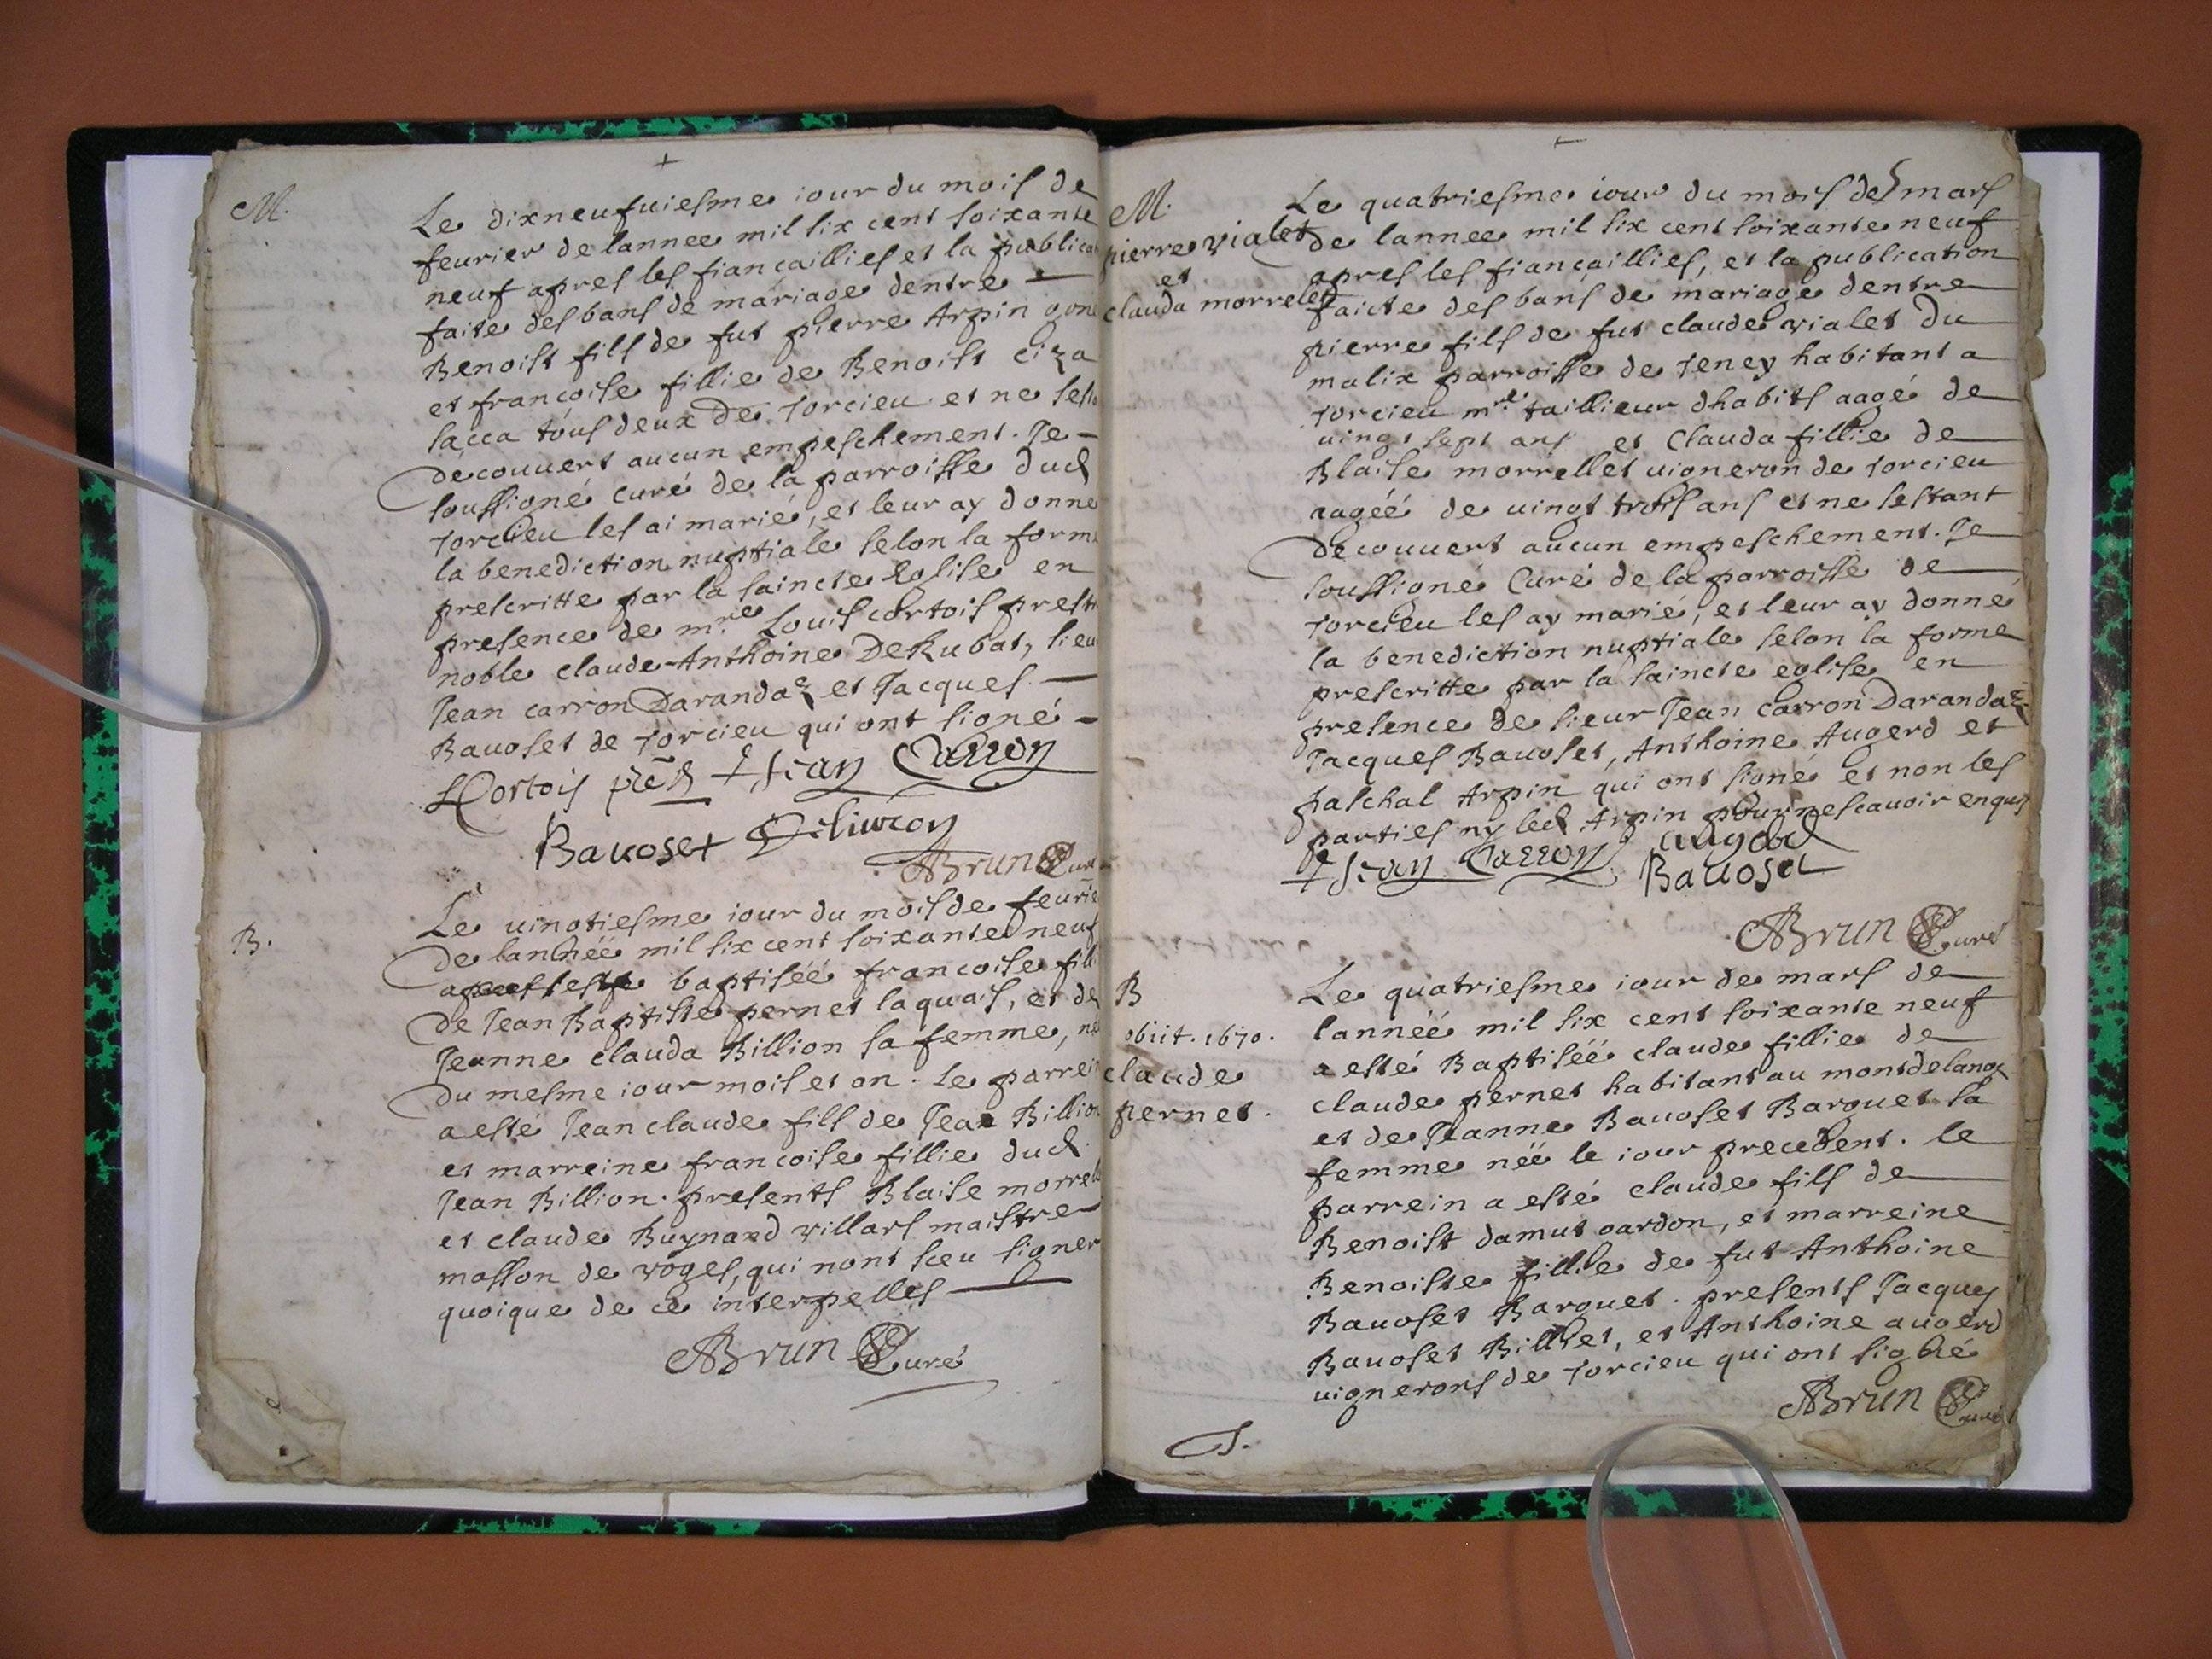 M.
Le dixneufuiesme iour du mois de
feurier de lannee mil six cent soixante
neuf apres les fiancaillies et la publica
faite des bans de mariage dentre
Benoist fils de fut pierre Arpin gon
et francoise fillie de Benoist ciza
sacca tous deux de torcieu et ne sest
decouuert aucun empeschement. Je
soussigné curé de la parroisse dud
torcieu les ai marié, et leur ay donne
la benediction nuptiale selon la form
prescritte par la saincte Eglise en
presence de mre Louis cortois prest
noble claude Anthoine DeRubat, sieu
Jean carron Darandaz et Jacques
Bauoset de torcieu qui ont signé
LCortois pre Jean Carron
Bauoset
ABrun Curé
B.
Le uingtiesme iour du mois de feurie
de lannéé mil six cent soixante neuf
a esté baptiséé francoise filli
de Jean Baptiste pernet laquais, et de
Jeanne clauda Billion sa femme, ne
du mesme iour mois et an. Le parrei
a esté Jean claude fils de Jean Billion
et marreine francoise fillie dud
Jean Billion. presents Blaise morrel
et claude Buynand villars maistre
masson de voges, qui nont sceu signer
quoique de ce interpelles
ABrun Curé
M.
pierre vialet
et
clauda morrelet
Le quatriesme iour du mois de mars
de lannee mil six cent soixante neuf
apres les fiancaillies, et la publication
faicte des bans de mariage dentre
pierre fils de fut claude vialet du
malix parroisse de teney habitant a
torcieu mre taillieur dhabits aagé de
uingt sept ans et Clauda fillie de
Blaise morrellet uigneron de torcieu
aagéé de uingt trois ans et ne sestant
decouuert aucun empeschement. Je
soussigné Curé de la parroisse de
torcieu les ay marié, et leur ay donné
la benediction nuptiale selon la forme
prescritte par la saincte eglise en
presence de sieur Jean Carron Darandaz
Jacques Bauoset, Anthoine Augerd et
paschal Arpin qui ont signé et non les
parties ny led Arpin pour ne scauoir enquis
Jean Carron Augerd
Bauoset
ABrun Curé
B
obiit. 1670.
claude
pernet.
Le quatriesme iour de mars de
lannéé mil six cent soixante neuf
a esté Baptiséé claude fillie de
claude pernet habitant au montdelange
et de Jeanne Bauoset Barquet sa
femme néé le iour precedent. le
parrein a esté claude fils de
Benoist damut gardon, et marreine
Benoiste fillie de fut Anthoine
Bauoset Barquet. presents Jacques
Bauoset Billiet, et Anthoine augerd
uignerons de torcieu qui ont signé
ABrun Curé